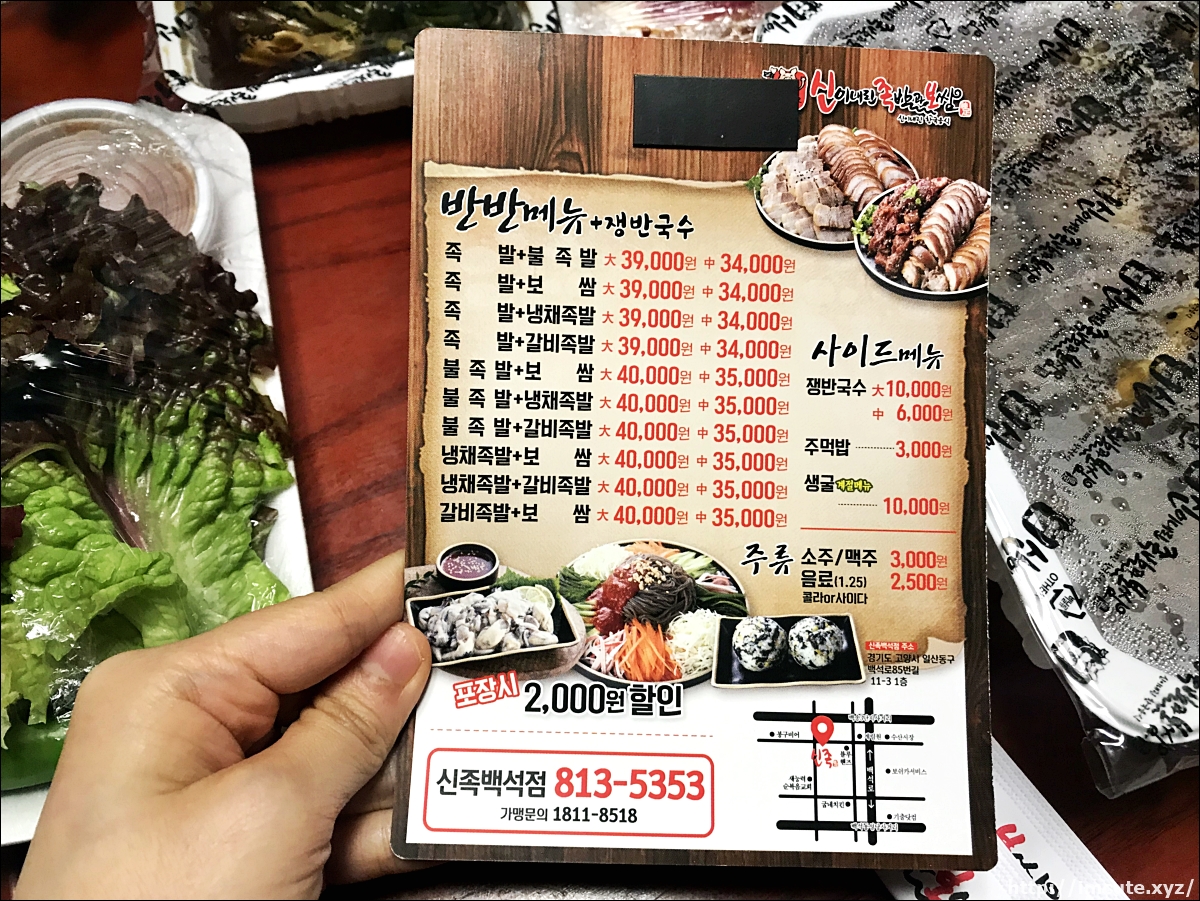 신이내린족발과보쌈은
반반메뉴+쟁반국수
족 발+불 족 발 大 39,000원 中 34,000원
족 발+보 쌈 大 39,000원 中 34,000원
족 발+냉채족발 大 39,000원 中 34,000원
족 발+갈비족발 大 39,000원 中 34,000원
불 족 발+보 쌈 大 40,000원 中 35,000원
불 족 발+냉채족발 大 40,000원 中 35,000원
불 족 발+갈비족발 大 40,000원 中 35,000원
냉채족발+보 쌈 大 40,000원 中 35,000원
냉채족발+갈비족발 大 40,000원 中 35,000원
갈비족발+보 쌈 大 40,000원 中 35,000원
사이드메뉴
쟁반국수 大 10,000원
中 6,000원
주먹밥 3,000원
생굴 계절메뉴
10,000원
주류 소주/맥주 3,000원
음료(1.25) 2,500원
콜라or사이다
포장시 2,000원 할인
신족백석점 주소
경기도 고양시 일산동구
백석로85번길
11-3 1층
신족백석점 813-5353
가맹문의 1811-8518
봉구비어
수산시장
신족
블루
핸즈
백석로
보쉬카서비스
새능력
순복음교회
굽네치킨
http://imcute.xyz/